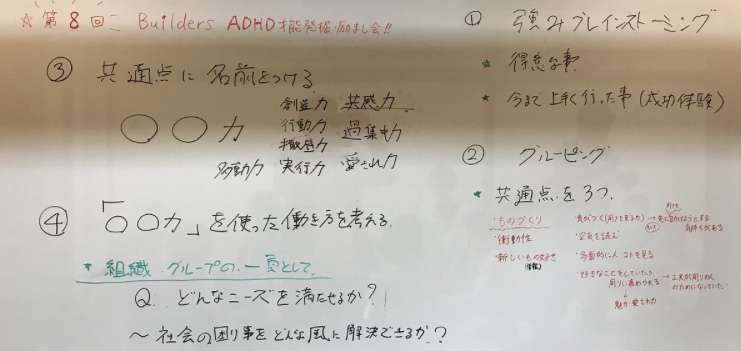 ☆ 第8回: Builders ADHD才能発掘・励まし会!!
③ 共通点に名前をつける
○○力
創造力 共感力
行動力 過集中力
多動力 実行力 愛され力
④ 「○○力」を使った働き方を考える
* 組織・グループの一員として
Q. どんなニーズを満たせるか?
~社会の困り事をどんな風に解決できるか?
① 強みブレインストーミング
* 得意な事
* 今まで上手く行った事(成功体験)
② グルーピング
* 共通点を3つ
・ものづくり
・衝動性
・新しいもの好き
(情報)
・空気を読む
・多動的に人 コトを見る
・好きなことをしていたら
周りに褒められる → 工夫が周りの人
のためになっていた
↓
魅力 愛され力